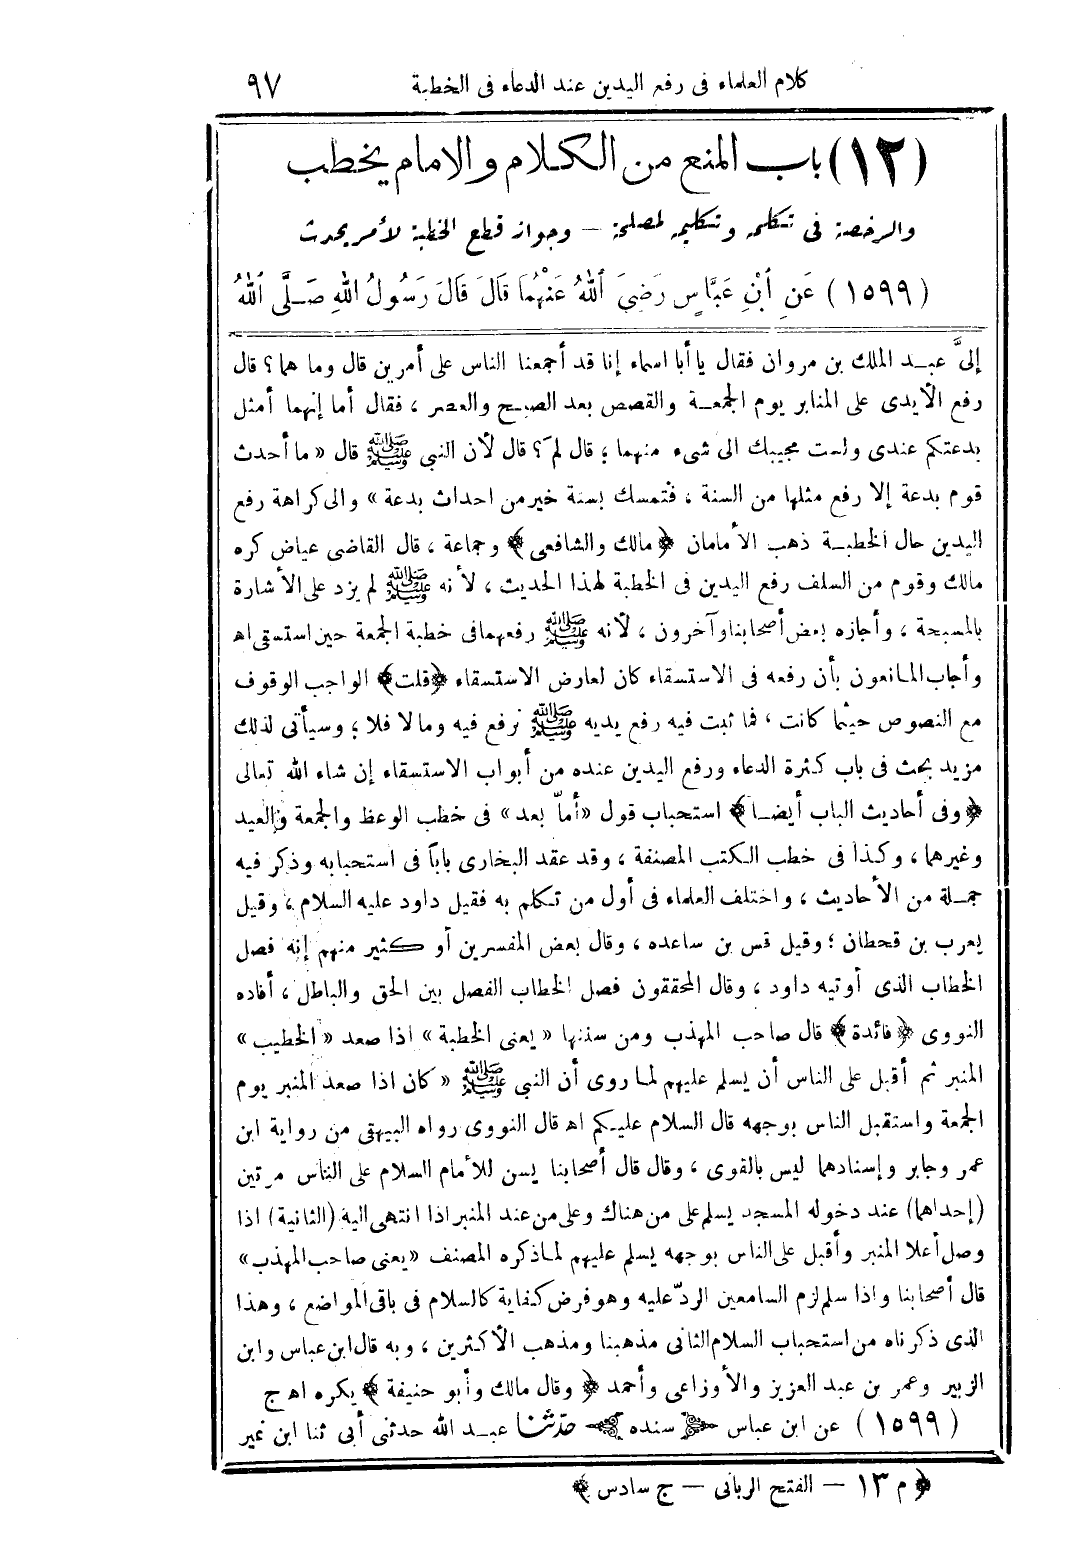 كلام العلماء فى رفع اليدين عند الدعاء فى الخطبة ٩٧
(١٢) باب المنع من الكلام والامام يخطب
والرخصة فى تكلمه وتكليمه لمصلحة – وجواز قطع الخطبة لأمر يحدث
(١٥٩٩) عَنِ ٱبْنِ عَبَّاسٍ رَضِيَ ٱللهُ عَنْهُمَا قَالَ قَالَ رَسُولُ اللهِ صَلَّى ٱللهُ
إلىَّ عبد الملك بن مروان فقال يا أبا اسماء إنا قد أجمعنا الناس على أمرين قال وما هما؟ قال
رفع الأيدى على المنابر يوم الجمعة والقصص بعد الصبح والعصر ، فقال أما إنهما أمثل
بدعتكم عندى ولست مجيبك الى شىء منهما ؛ قال لمَ؟ قال لأن النبى ﷺ قال « ما أحدث
قوم بدعة إلا رفع مثلها من السنة ، فتمسك بسنة خير من احداث بدعة » والى كراهة رفع
اليدين حال الخطبة ذهب الأمامان ﴿مالك والشافعى﴾ وجماعة ، قال القاضى عياض كره
مالك وقوم من السلف رفع اليدين فى الخطبة لهذا الحديث ، لأنه ﷺ لم يزد على الأشارة
بالمسبحة ، وأجازه بعض أصحابنا وآخرون ، لأنه ﷺ رفعهما فى خطبة الجمعة حين استسقى اه
وأجاب المانعون بأن رفعه فى الاستسقاء كان لعارض الاستسقاء ﴿قلت﴾ الواجب الوقوف
مع النصوص حيثما كانت ، فما ثبت فيه رفع يديه ﷺ نرفع فيه وما لا فلا ؛ وسيأتى لذلك
مزيد بحث فى باب كثرة الدعاء ورفع اليدين عنده من أبواب الاستسقاء إن شاء الله تعالى
﴿وفى أحاديث الباب أيضا﴾ استحباب قول «أمّا بعد» فى خطب الوعظ والجمعة والعيد
وغيرهما ، وكذا فى خطب الكتب المصنفة ، وقد عقد البخارى باباً فى استحبابه وذكر فيه
جملة من الأحاديث ، واختلف العلماء فى أول من تكلم به فقيل داود عليه السلام ، وقيل
يعرب بن قحطان ؛ وقيل قس بن ساعده ، وقال بعض المفسرين أو كثير منهم إنه فصل
الخطاب الذى أوتيه داود ، وقال المحققون فصل الخطاب الفصل بين الحق والباطل ، أفاده
النووى ﴿فائدة﴾ قال صاحب المهذب ومن سننها « يعنى الخطبة » اذا صعد « الخطيب »
المنبر ثم أقبل على الناس أن يسلم عليهم لما روى أن النبى ﷺ « كان اذا صعد المنبر يوم
الجمعة واستقبل الناس بوجهه قال السلام عليكم اه قال النووى رواه البيهقى من رواية ابن
عمر وجابر وإسنادهما ليس بالقوى ، وقال قال أصحابنا يسن للأمام السلام على الناس مرتين
(إحداهما) عند دخوله المسجد يسلم على من هناك وعلى من عند المنبر اذا انتهى اليه (الثانية) اذا
وصل أعلا المنبر وأقبل على الناس بوجهه يسلم عليهم لما ذكره المصنف «يعنى صاحب المهذب»
قال أصحابنا واذا سلم لزم السامعين الردّ عليه وهو فرض كفاية كالسلام فى باقى المواضع ، وهذا
الذى ذكرناه من استحباب السلام الثانى مذهبنا ومذهب الأكثرين ، وبه قال ابن عباس وابن
الزبير وعمر بن عبد العزيز والأوزاعى وأحمد ﴿وقال مالك وأبو حنيفة﴾ يكره اه ج
(١٥٩٩) عن ابن عباس ﴿سنده﴾ حدّثنا عبد الله حدثنى أبى ثنا ابن نمير
﴿م ١٣ – الفتح الربانى – ج سادس﴾